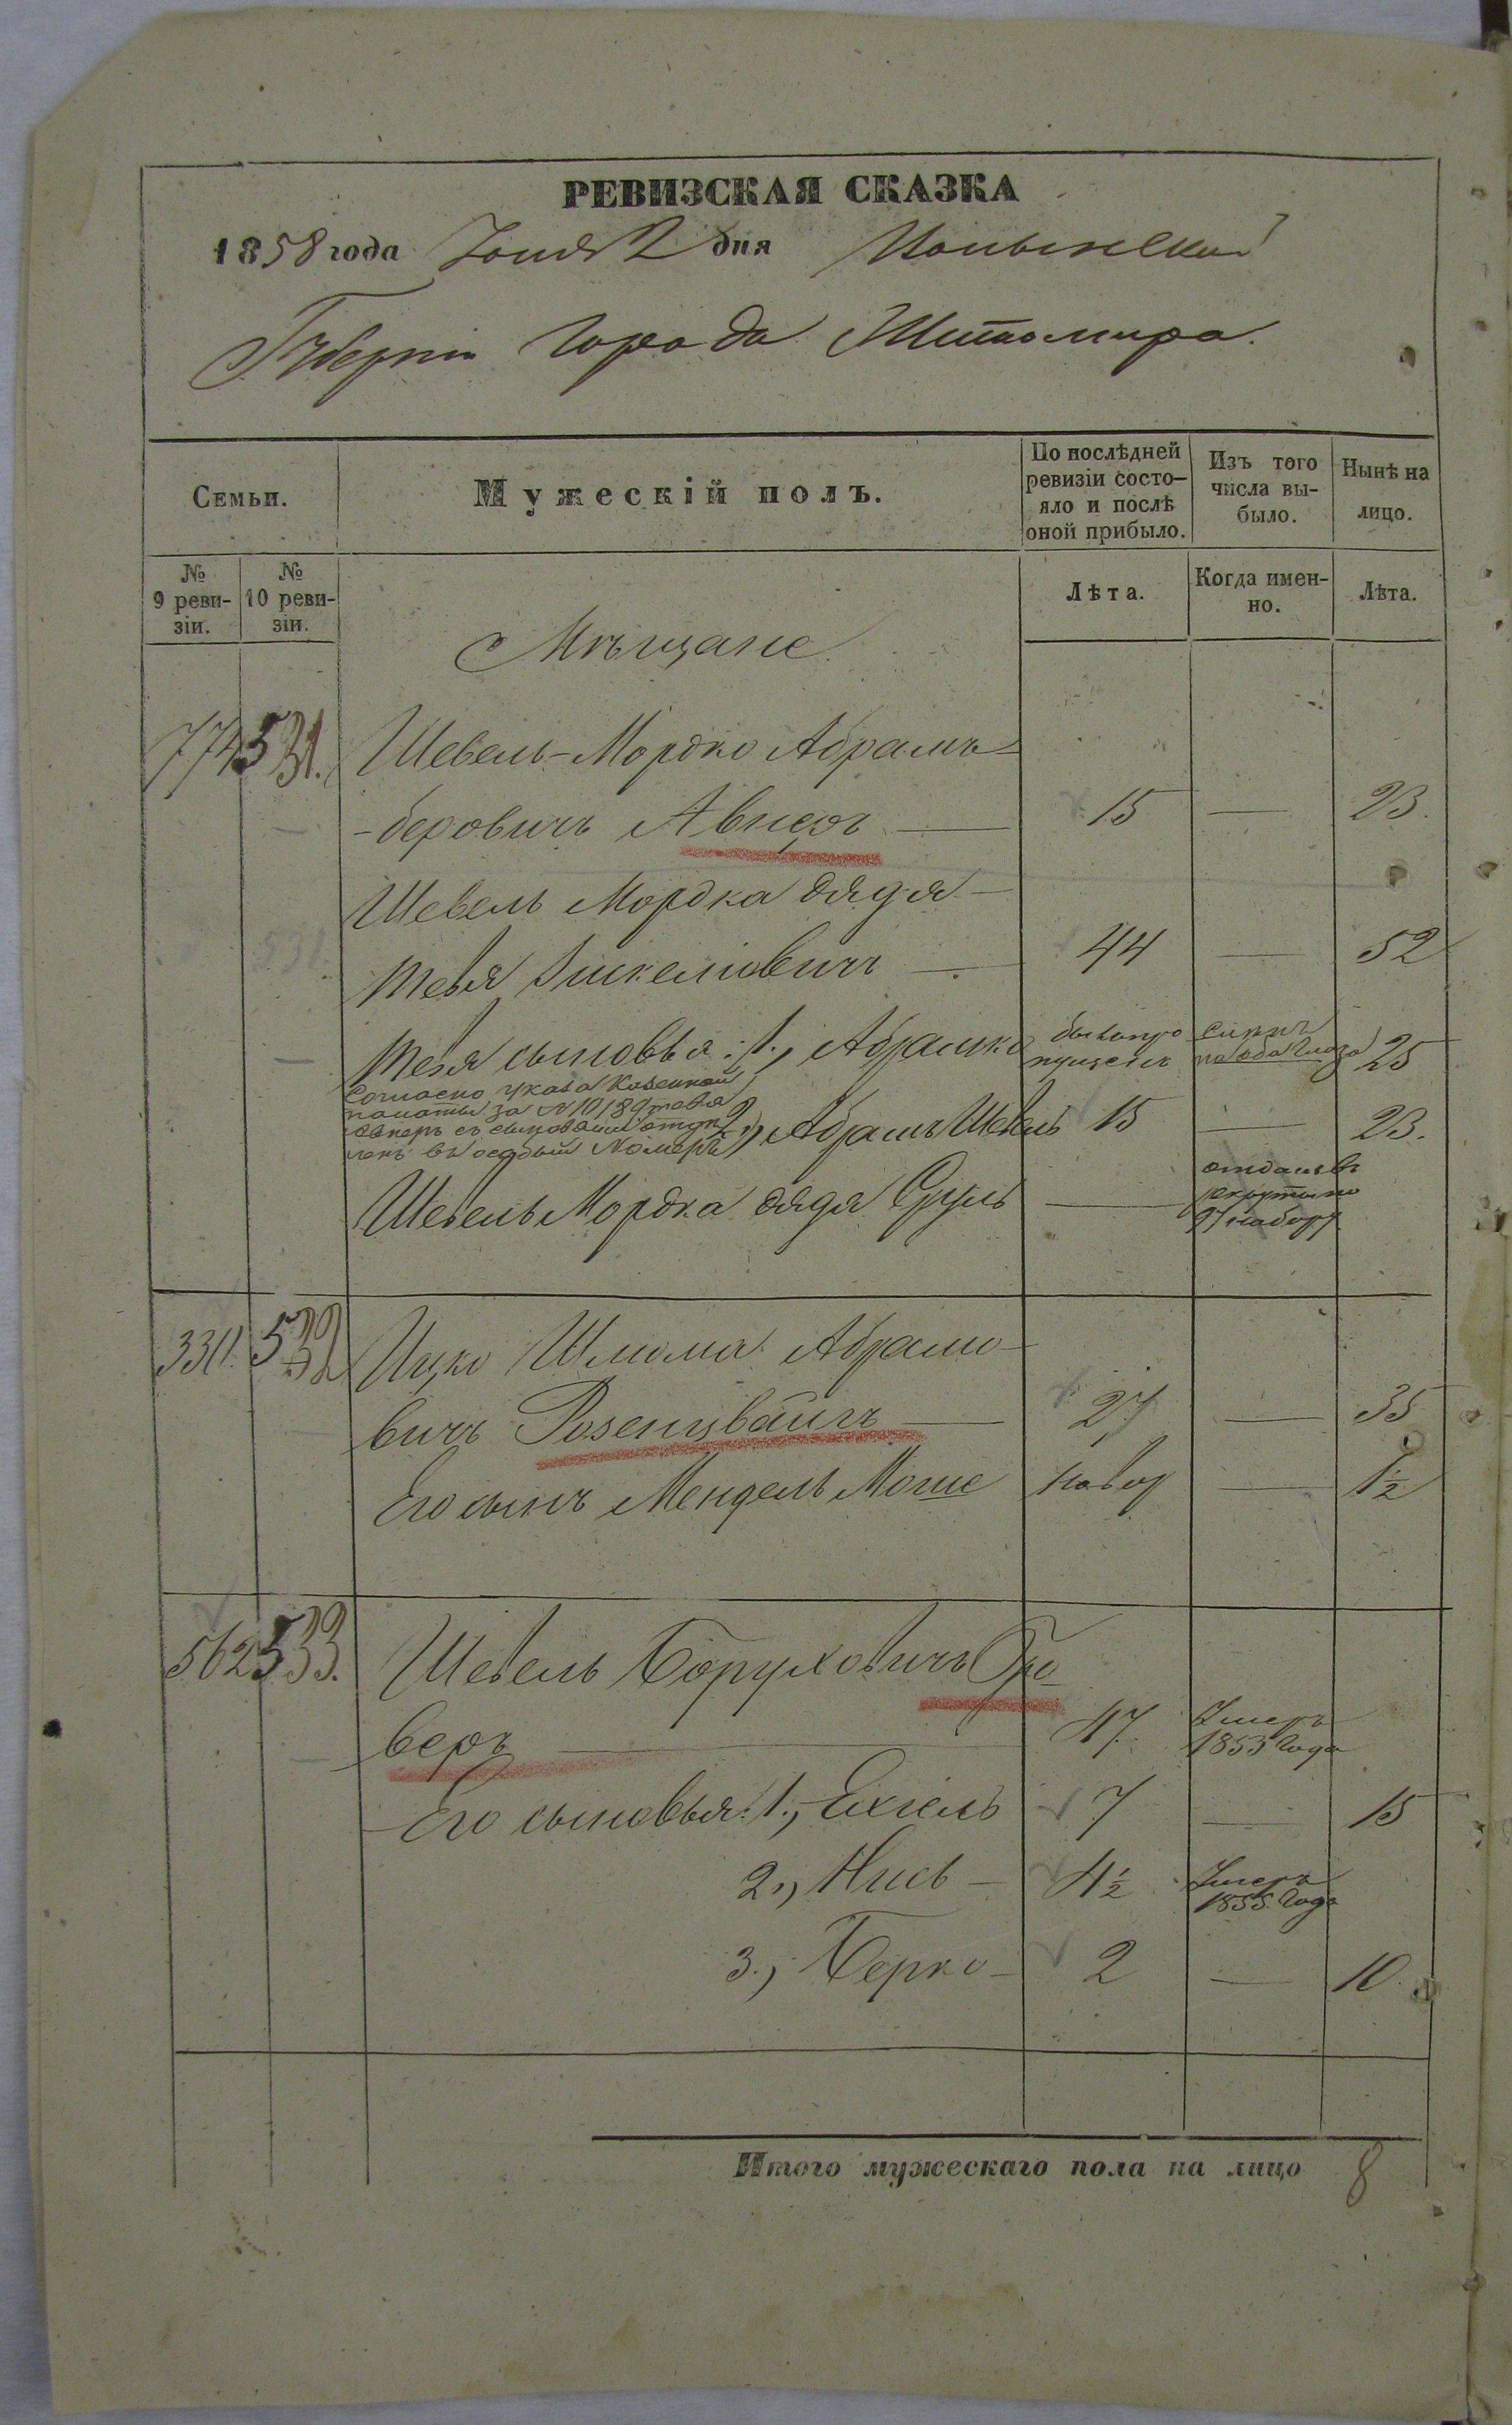 РЕВИЗСКАЯ СКАЗКА
1858 года Іюня 2 дня Волынской
Губерніи Города Житомира.
Семьи.
Мужескій полъ.
По послѣдней ревизіи состо-
яло и послѣ оной прибыло.
Изъ того числа вы-
было.
Нынѣ на лицо.
№ 9 реви-
зіи.
№ 10 реви-
зіи.
Лѣта.
Когда имен-
но.
Лѣта.
Мѣщане.
774 531. Шевель-Мордко Абрамъ-
-беровичъ Авнеръ — 15 — 23.
Шевель Мордка дядя —
Тевя Іискелювичъ — 44 — 52
Тевя сыновья: 1., Абрамко былъ про
пущенъ слѣпъ
на оба глаза 25
Согласно указа Казенной
палаты за №10189 Тевя
Авнеръ съ сыновьями отдѣ
ленъ въ особый Номеръ
2., Абрамъ Шевель 15 — 23.
Шевель Мордка дядя Сруль — отданъ въ
рекруты по
набору
330. 532 Ицко Шлиома Абрамо-
вичъ Розенцвайгъ — 27 — 35
Его сынъ Мендель Моше новор — 1½
562 533. Шевель Боруховичъ Гро-
веръ — 47. Умеръ
1853 года
Его сыновья: 1., Ехіель 7 — 15
2., Нисъ — 4½ Умеръ
1855 года
3., Берко — 2 — 10.
Итого мужескаго пола на лицо 8